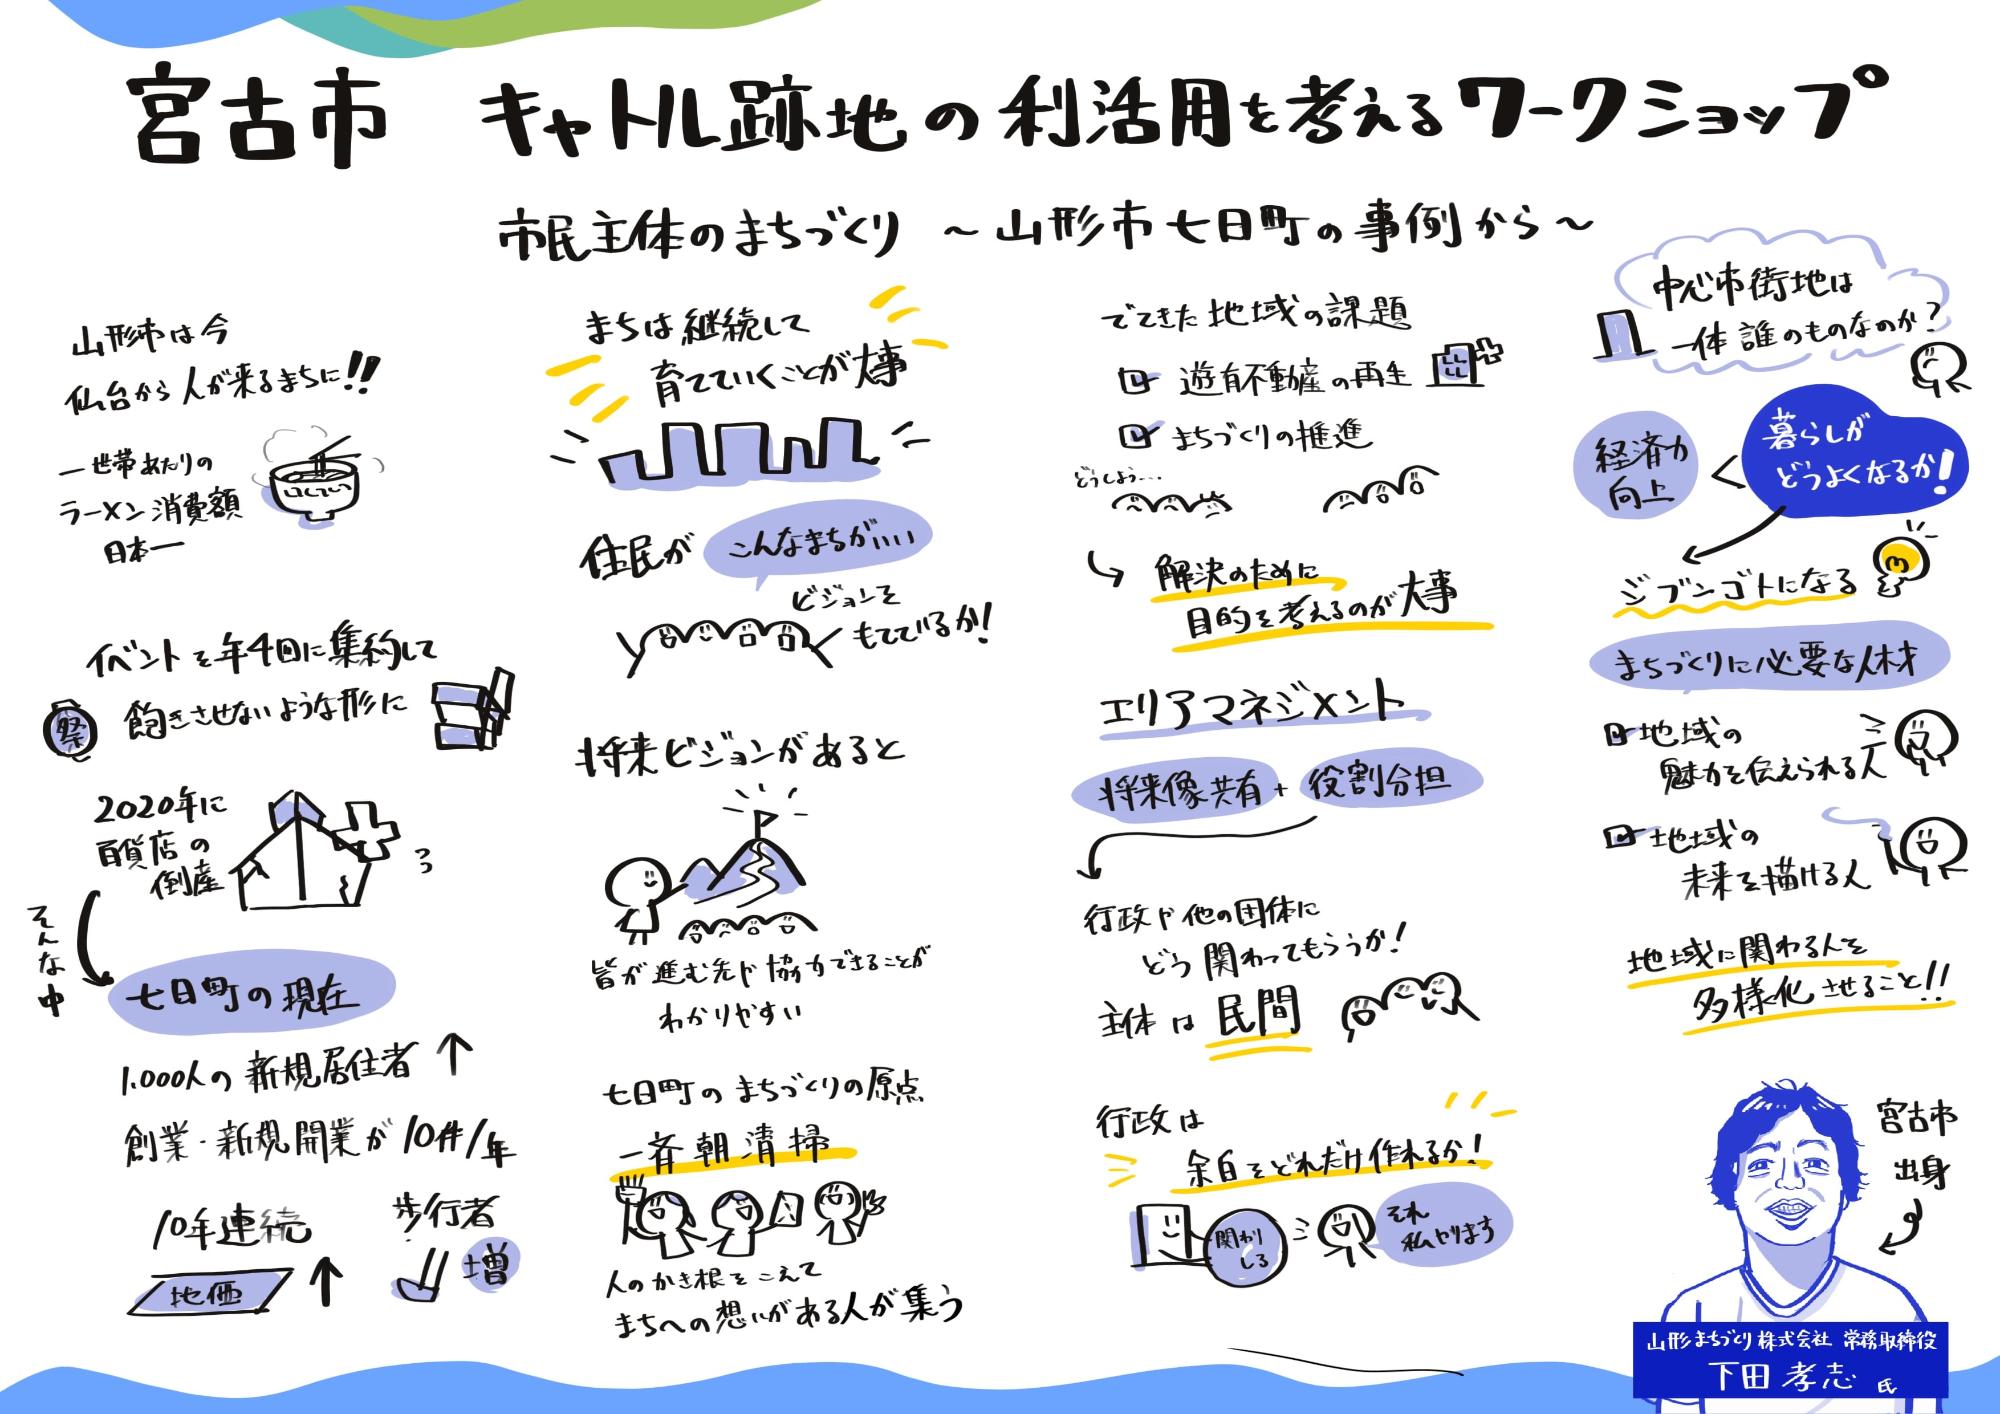 宮古市 キャトル跡地の利活用を考えるワークショップ
市民主体のまちづくり ～山形市七日町の事例から～
山形市は今
仙台から人が来るまちに!!
一世帯あたりの
ラーメン消費額
日本一
イベントを年4回に集約して
祭
飽きさせないような形に
2020年に
百貨店の
倒産
そんな中
七日町の現在
1,000人の新規居住者↑
創業・新規開業が10件/年
10年連続
地価↑
歩行者
増
まちは継続して
育てていくことが大事
住民が
こんなまちがいい
ビジョンを
もてているか!
将来ビジョンがあると
皆が進む先や協力できることが
わかりやすい
七日町のまちづくりの原点
一斉朝清掃
人のかき根をこえて
まちへの想いがある人が集う
でてきた地域の課題
遊有不動産の再生
まちづくりの推進
どうしよう…
解決のために
目的を考えるのが大事
エリアマネジメント
将来像共有+役割分担
行政や他の団体に
どう関わってもらうか!
主体は民間
行政は
余白をどれだけ作れるか!
関わり
しろ
それ
私やります
中心市街地は
一体誰のものなのか?
暮らしが
どうよくなるか!
経済力
向上
ジブンゴトになる
まちづくりに必要な人材
地域の
魅力を伝えられる人
地域の
未来を描ける人
地域に関わる人を
多様化させること!!
宮古市
出身
山形まちづくり株式会社 常務取締役
下田 孝志 氏